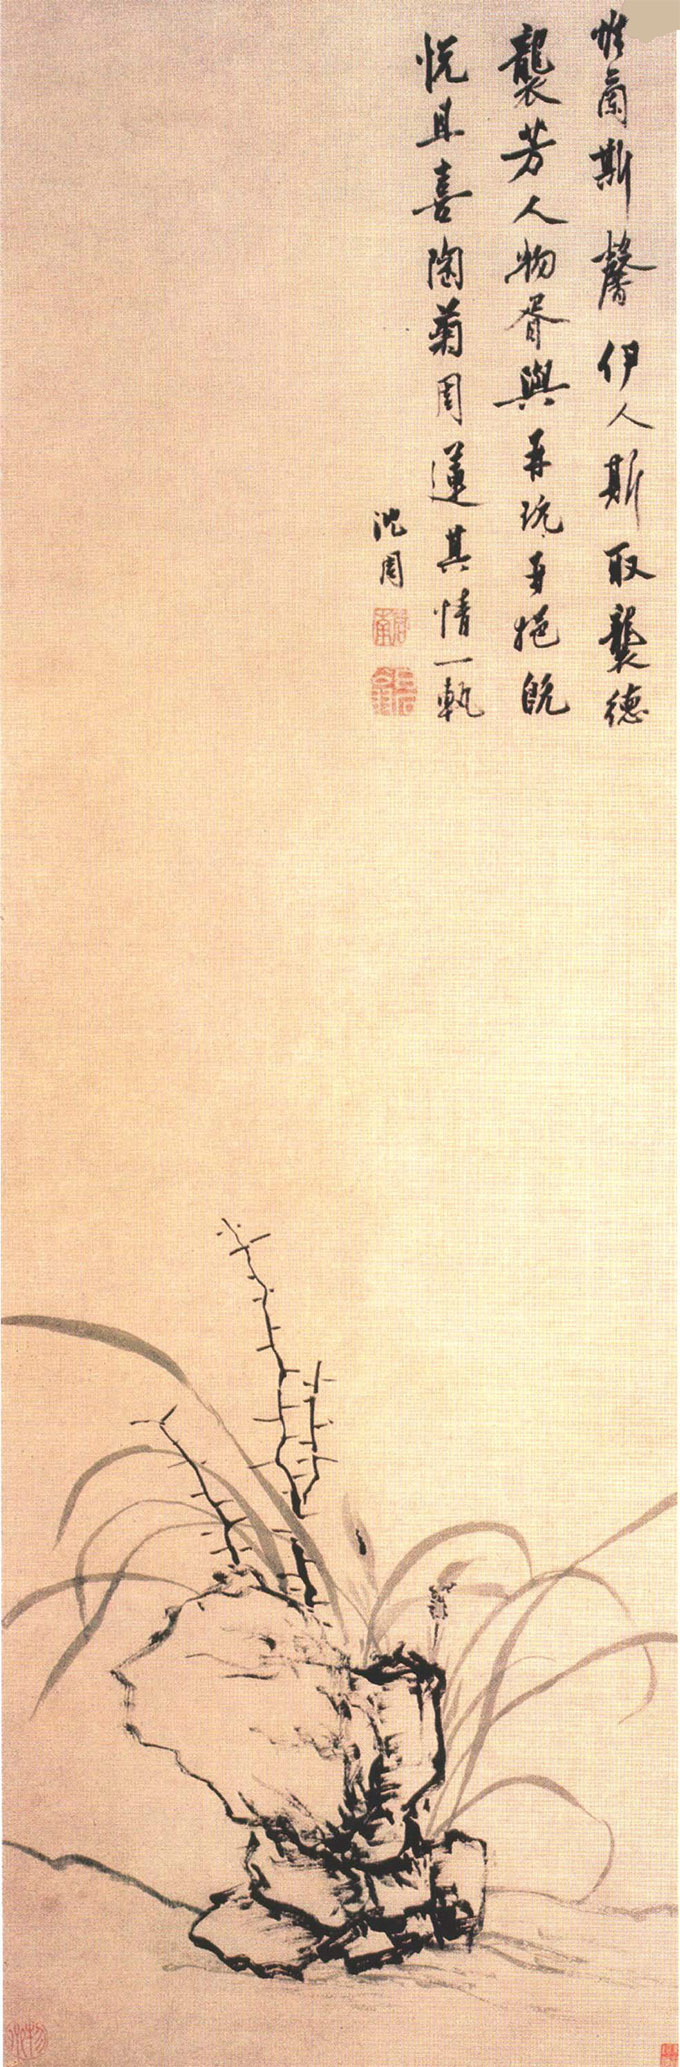 惟蘭斯馨伊人斯取襲德
襲芳人物胥與再玩再挹既
悦且喜陶菊周蓮其情一軌
沈周